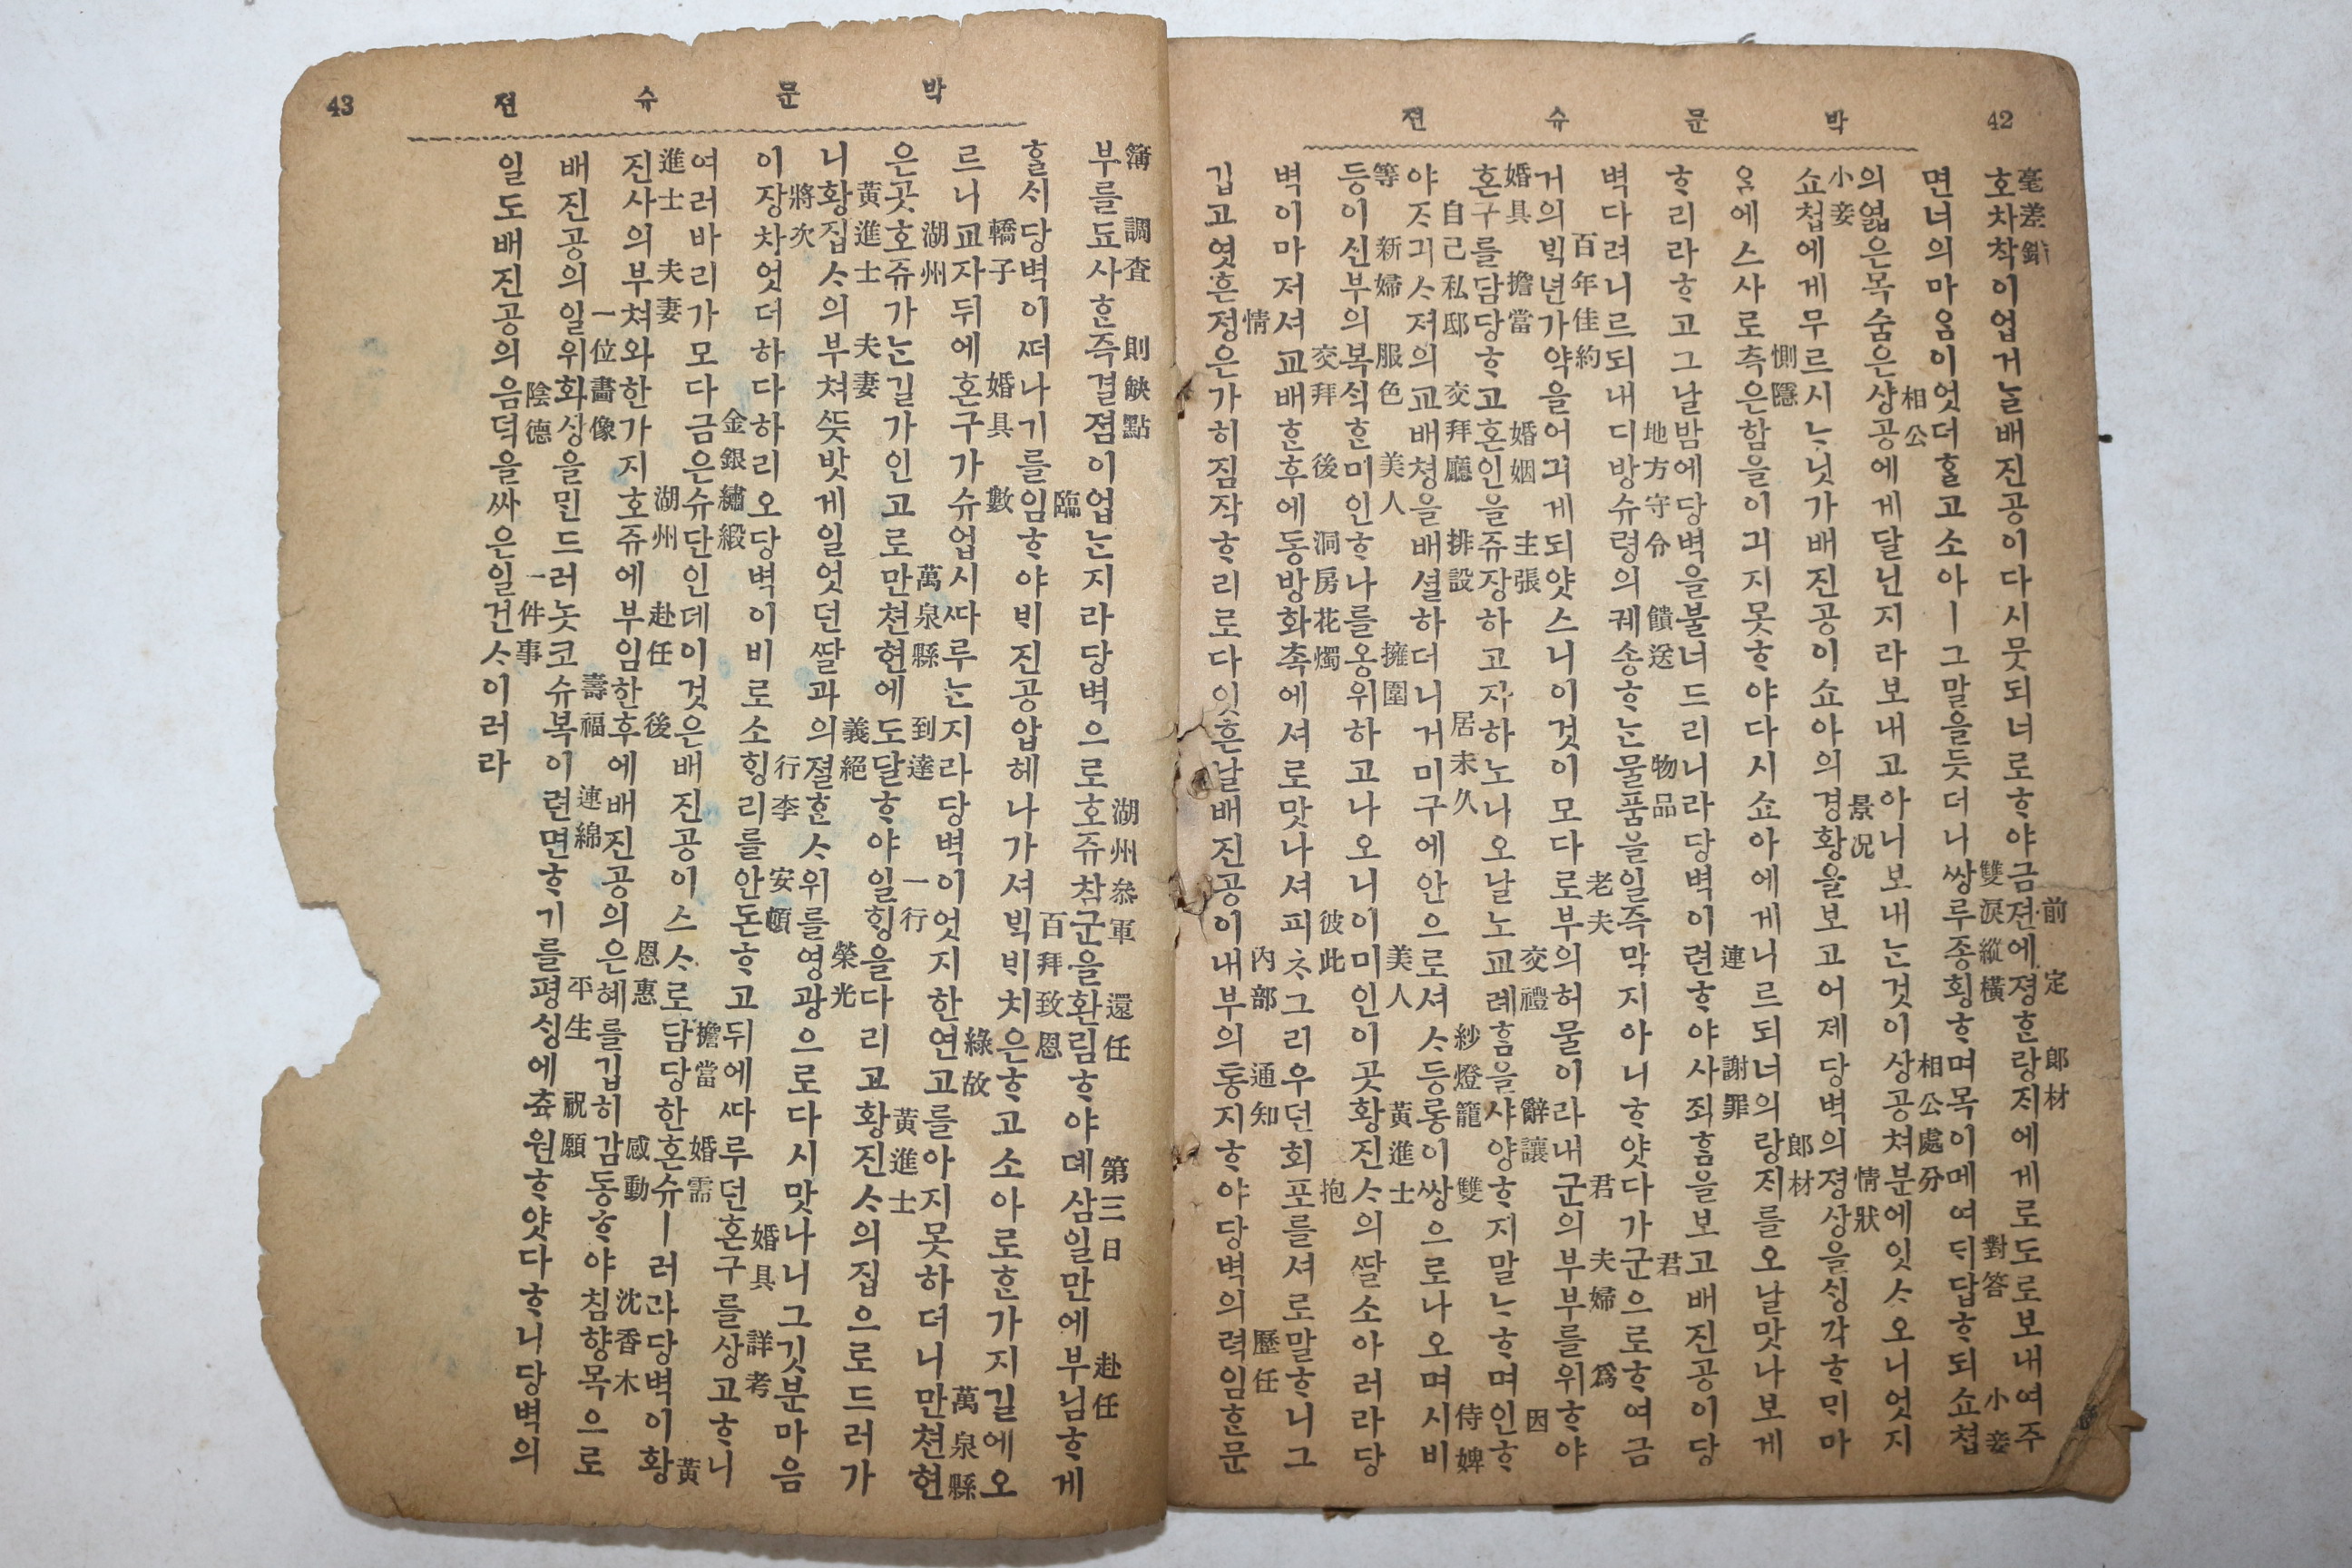 42
박문슈젼
毫差錯 前 定 郞材
호차착이업거ᄂᆞᆯ배진공이다시뭇되너로ᄒᆞ야금젼에졍ᄒᆞᆫ랑ᄌᆡ에게로도로보내여주
雙淚縱橫 對答 小妾
면너의마ᄋᆞᆷ이엇더ᄒᆞᆯ고소아ㅣ그말을듯더니쌍루종횡ᄒᆞ며목이메여ᄃᆡ답ᄒᆞ되쇼쳡
相公 相公處分
의엷은목숨은샹공에게달닌지라보내고아니보내ᄂᆞᆫ것이상공쳐분에잇ᄉᆞ오니엇지
小妾 景况 情狀
쇼쳡에게무르시ᄂᆞ닛가배진공이쇼아의경황을보고어제당벽의졍상을ᄉᆡᆼ각ᄒᆞᄆᆡ마
惻隱 郞材
ᄋᆞᆷ에스사로측은함을이긔지못ᄒᆞ야다시쇼아에게니르되너의랑ᄌᆡ를오날맛나보게
連 謝罪
ᄒᆞ리라ᄒᆞ고그날밤에당벽을불너드리니라당벽이련ᄒᆞ야사죄ᄒᆞᆷ을보고배진공이당
地方守令 饋送 物品 君
벽다려니르되내디방슈령의궤송ᄒᆞᄂᆞᆫ물품을일즉막지아니ᄒᆞ얏다가군으로ᄒᆞ여금
百年佳約 老夫 君 夫婦 爲
거의ᄇᆡᆨ년가약을어긔게되얏스니이것이모다로부의허물이라내군의부부를위ᄒᆞ야
婚具 擔當 婚姻 主張 交禮 辭讓 因
혼구를담당ᄒᆞ고혼인을쥬장하고자하노나오날노교례ᄒᆞᆷ을샤양ᄒᆞ지말ᄂᆞᄒᆞ며인ᄒᆞ
自己私邸 交拜廳 排設 居未久 紗燈籠 雙 侍婢
야ᄌᆞ긔ᄉᆞ져의교배쳥을배셜하더니거미구에안으로셔ᄉᆞ등롱이쌍으로나오며시비
等 新婦 服色 美人 擁圍 美人 黃進士
등이신부의복식ᄒᆞᆫ미인ᄒᆞ나를옹위하고나오니이미인이곳황진ᄉᆞ의딸소아러라당
交拜 後 洞房花燭 彼此 抱
벽이마저셔교배ᄒᆞᆫ후에동방화촉에셔로맛나셔피ᄎᆞ그리우던회포를셔로말ᄒᆞ니그
情 內部 通知 歷任
깁고엿흔정은가히짐작ᄒᆞ리로다잇흔날배진공이내부의통지ᄒᆞ야당벽의력임ᄒᆞᆫ문
43
박문슈젼
簿 調査 則 缺點 湖州叅軍 還任 第三日 赴任
부를됴사ᄒᆞᆫ즉결졈이업ᄂᆞᆫ지라당벽으로호쥬참군을환림ᄒᆞ야뎨삼일만에부님ᄒᆞ게
臨 百拜致恩
ᄒᆞᆯᄉᆡ당벽이ᄯᅥ나기를임ᄒᆞ야ᄇᆡ진공압헤나가셔ᄇᆡᆨᄇᆡ치은ᄒᆞ고소아로ᄒᆞᆫ가지길에오
轎子 婚具 數 綠故 萬泉縣
르니교자뒤에혼구가슈업시ᄯᅡ루ᄂᆞᆫ지라당벽이엇지한연고를아지못하더니만쳔현
湖州 萬泉縣 到達 一行 黃進士
은곳호쥬가ᄂᆞᆫ길가인고로만쳔현에도달ᄒᆞ야일ᄒᆡᆼ을다리고황진ᄉᆞ의집으로드러가
黃進士 夫妻 義絕 榮光
니황집ᄉᆞ의부쳐ᄯᅳᆺ밧게일엇던딸과의졀ᄒᆞᆫᄉᆞ위를영광으로다시맛나니그깃분마음
將次 行李 安頓 婚具 詳考
이장차엇더하다하리오당벽이비로소ᄒᆡᆼ리를안돈ᄒᆞ고뒤에ᄯᅡ루던혼구를상고ᄒᆞ니
金銀繡緞 擔當 婚需 黃
여러바리가모다금은슈단인데이것은배진공이스ᄉᆞ로담당한혼슈ㅣ러라당벽이황
進士 夫妻 湖州 赴任 後 恩惠 感動 沈香木
진사의부쳐와한가지호쥬에부임한후에배진공의은혜를깁히감동ᄒᆞ야침향목으로
一位畵像 壽福 連綿 平生 祝願
배진공의일위화상을ᄆᆡᆫ드러놋코슈복이련면ᄒᆞ기를평ᄉᆡᆼ에츅원ᄒᆞ얏다ᄒᆞ니당벽의
陰德 一件事
일도배진공의음덕을싸은일건ᄉᆞ이러라